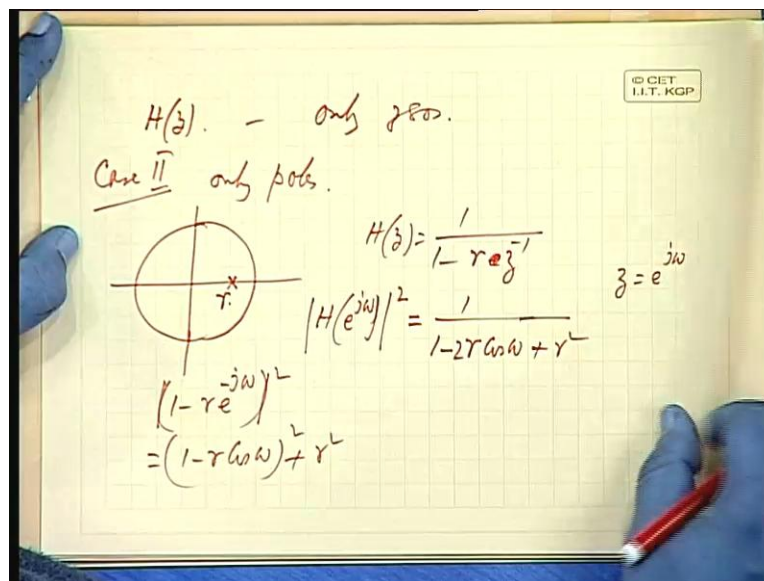 © CET
I.I.T. KGP
H(z). - only zeros.
Case II only poles.
H(z) = 1 / (1 - r z^-1)
z = e^jω
r.
|H(e^jω)|^2 = 1 / (1 - 2r Cos ω + r^2)
|1 - r e^-jω|^2
= (1 - r Cos ω)^2 + r^2